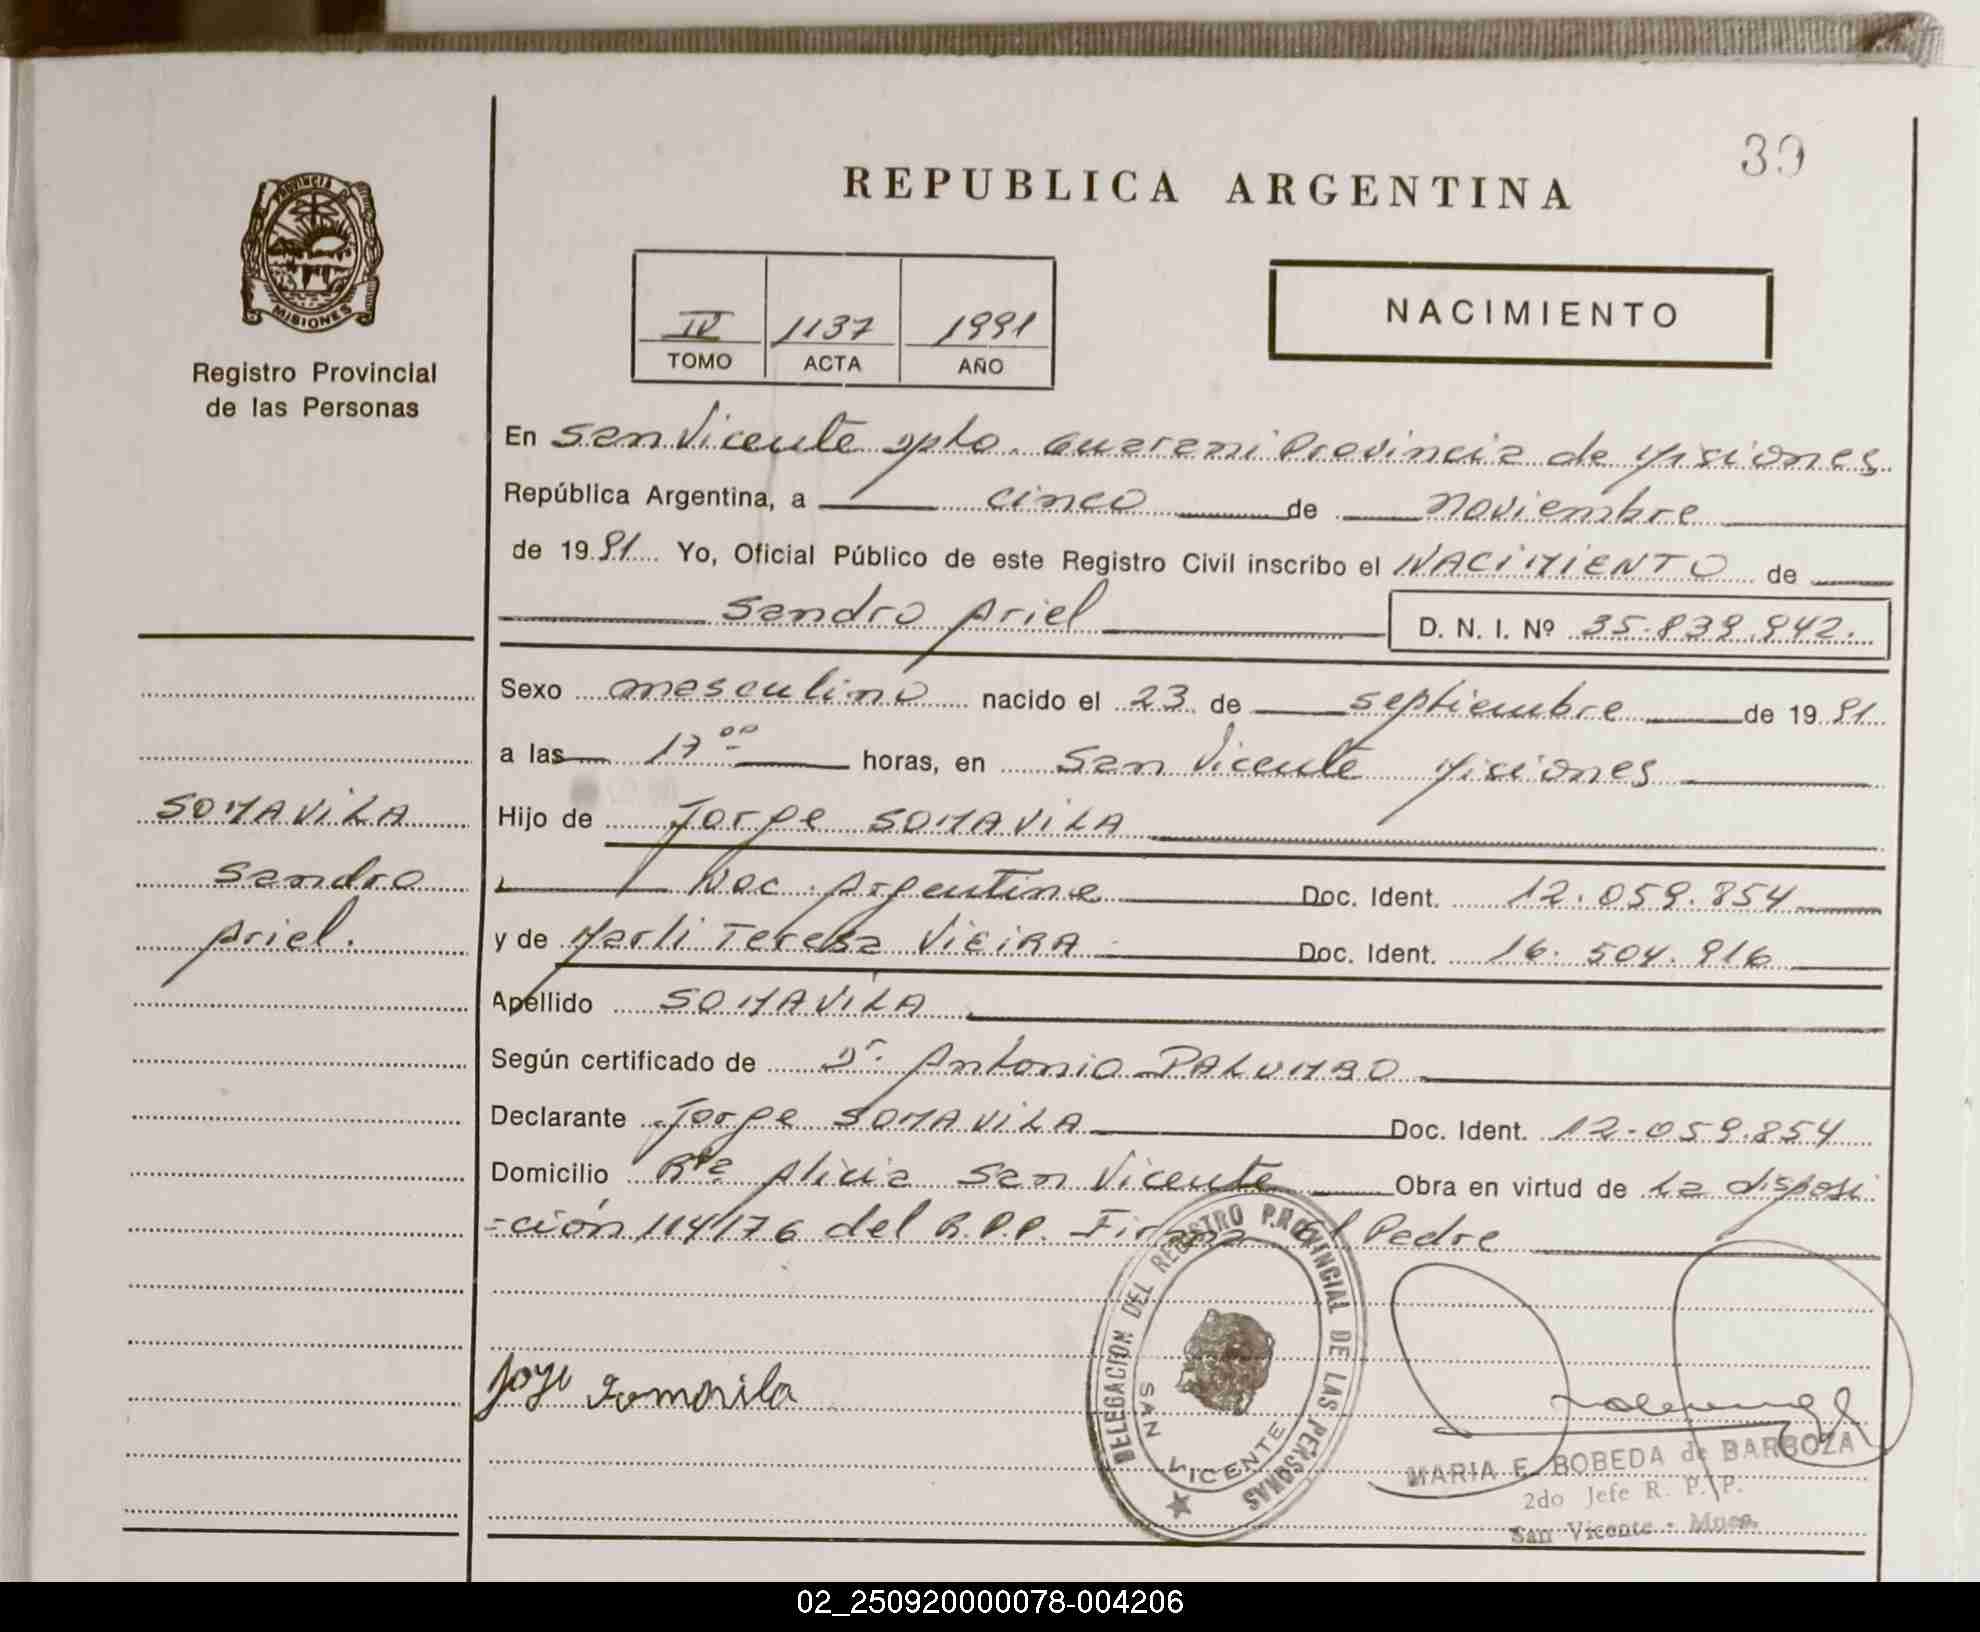 39
REPUBLICA ARGENTINA
PROVINCIA DE
MISIONES
Registro Provincial
de las Personas
IV 1137 1991
TOMO ACTA AÑO
NACIMIENTO
En San Vicente Dpto. Guarani Provincia de Misiones
República Argentina, a cinco de noviembre
de 1991 Yo, Oficial Público de este Registro Civil inscribo el NACIMIENTO de
Sandro Ariel D. N. I. Nº 35.839.942.
Sexo masculino nacido el 23 de septiembre de 1991
a las 17 00 horas, en San Vicente Misiones
Hijo de Jorge SOMAVILA
Nac. Argentina Doc. Ident. 12.059.854
y de Marli Teresa VIEIRA Doc. Ident. 16.504.916
Apellido SOMAVILA
Según certificado de Dr. Antonio PALUMBO
Declarante Jorge SOMAVILA Doc. Ident. 12.059.854
Domicilio Rta Alicia San Vicente Obra en virtud de la disposi
=ción 114/76 del R.P.P. Firma El Padre
SOMAVILA
Sandro
Ariel.
Jorge Somavila
DELEGACION DEL REGISTRO PROVINCIAL DE LAS PERSONAS
SAN VICENTE
MARIA E. BOBEDA de BARBOZA
2do Jefe R. P. P.
San Vicente - Mnes.
02_250920000078-004206